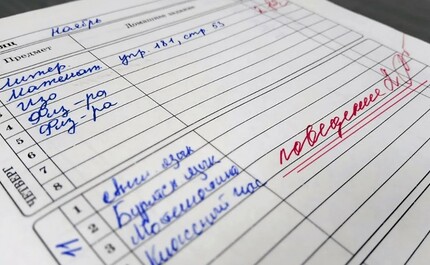 Ноябрь
Предмет
Домашнее задание
Литер.
Математ упр. 181, стр. 53
Изо
Физ-ра
Физ-ра
4
5
6
7
8
ЧЕТВЕРГ
поведение
11
1 Англ язык
2 Бурятск язык
3 Математика
Классный час